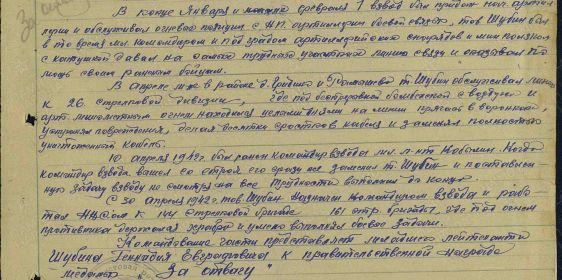 В конце Января и начале февраля 1 взвод был придан нач. артил
лерии и обслуживал огневые позиции с Н.П. артиллерии боевой связью, тов Шубин был
в то время мл. командиром и под градом артиллерийских снарядов и мин ползком
с катушкой давал на самых трудных участках линию связи и оказывал по
мощь своим раненым бойцам.
В апреле м-це в районе д. и т. Шубин обслуживал линию
к 26 стрелковой дивизии, где под беспрерывной бомбежкой с воздуха и
арт. минометным огнем находился целыми днями на линии прячась в воронках,
устранял повреждения, делая десятки сростков кабеля и заменяя полностью
уничтоженный кабель.
10 апреля 1942г. был ранен командир взвода мл. л-нт Когда
командир взвода вышел со строя его сразу же заменил т. Шубин и поставлен
ную задачу взводу не смотря на все трудности выполнил до конца
С 30 апреля 1942г. тов. Шубин назначен командиром взвода и рабо
тал к 144 стрелковой бригаде 161 стр. бригаде, где под огнем
противника держался храбро и умело выполнял боевые задачи.
Командование части представляет младшего лейтенанта
Шубина Геннадия Евграфовича к правительственной награде
медалью "За отвагу"